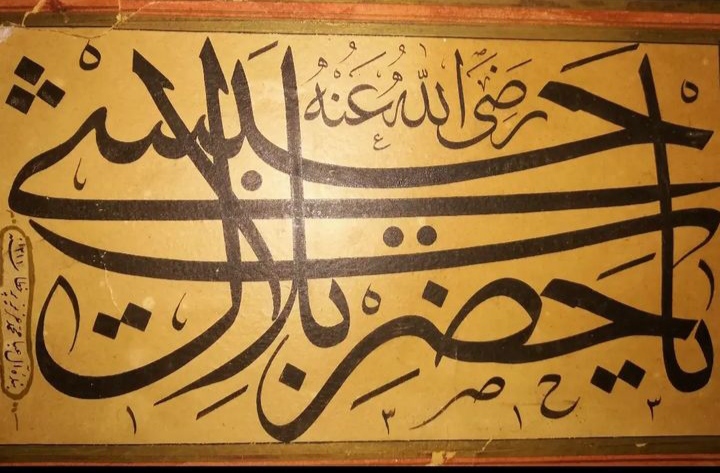 يا حضرت بلال حبشي
رَضِيَ اللهُ عَنْهُ